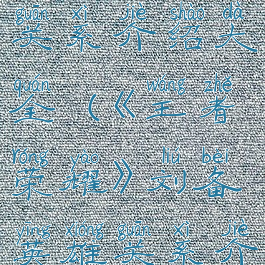 guān xì jiè shào dà
关系介绍大
quán wáng zhě
全（《王者
róng yào liú bèi
荣耀》刘备
yīng xióng guān xì jiè
英雄关系介